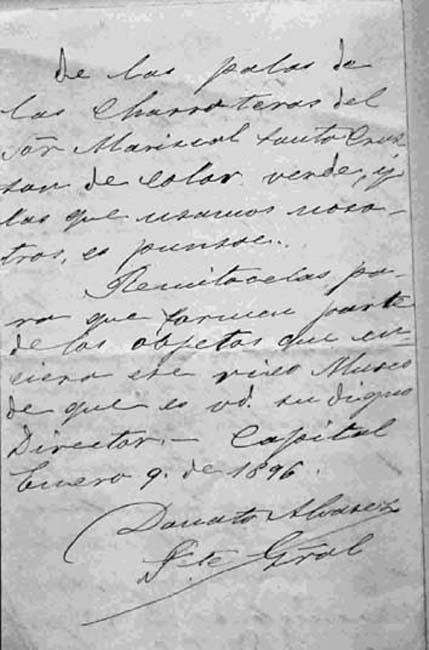 de las palas de
las charrateras del
Sõr Mariscal Santa Cruz
son de color verde, y
las que usamos noso-
tros, es punsoe..
Remitocelas pa-
ra que formen parte
de los objetos que en-
ciera ese rico Museo
de que es vd. su digno
Director. – Capital
Enero 9. de 1896.
Donato Alvarez
T.te Gral